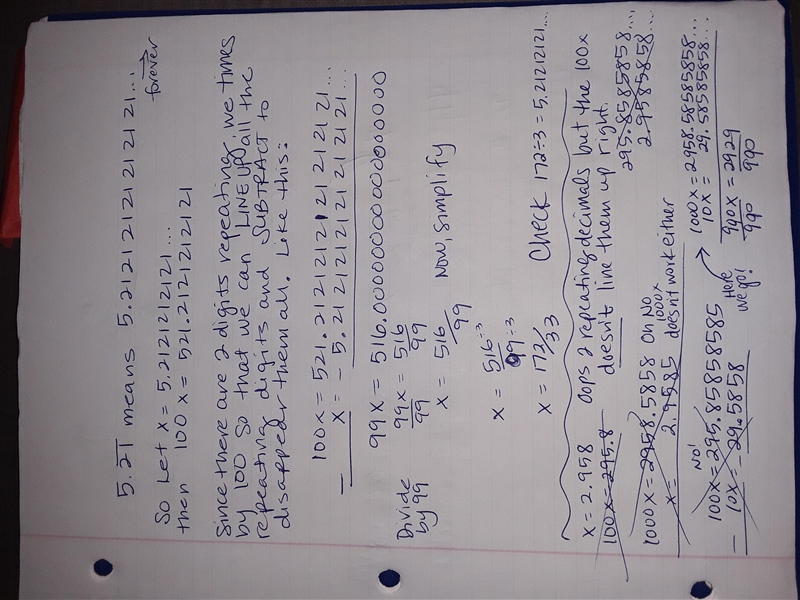 5.21 means 5.2121 21 21 21 21 21 21 21...
forever
So Let x = 5.2121212121...
then 100 x = 521.212121212121
Since there are 2 digits repeating, we times
by 100 so that we can LINE UP all the
repeating digits and SUBTRACT to
disappear them all. Like this:
100x = 521.2121212121212121...
- x = - 5.2121212121212121...
99x = 516.000000000000000000
Divide by 99
99x/99 = 516/99
x = 516/99 Now, simplify
x = 516÷3/99÷3
x = 172/33 Check 172÷3 = 5.21212121...
x = 2.958 Oops 2 repeating decimals but the 100x
100x = 295.8 doesn't line them up right.
295.8585858...
2.9585858...
1000x = 2958.5858 Oh No
x = 2.9585 1000x doesn't work either
No!
100x = 295.85858585
- 10x = - 29.5858
Here we go!
1000x = 2958.58585858...
10x = 29.58585858...
990x/990 = 2929/990